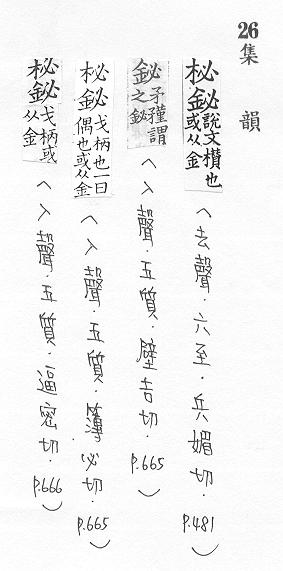 26集韻
柲鉍說文欑也或从金〈去聲．六至．兵媚切．P.481〉
鉍矛謂之鉍〈入聲．五質．壁吉切．P.665〉
柲鉍戈柄也一曰偶也或从金〈入聲．五質．簿必切．P.665〉
柲鉍戈柄或从金〈入聲．五質．逼密切．P.666〉